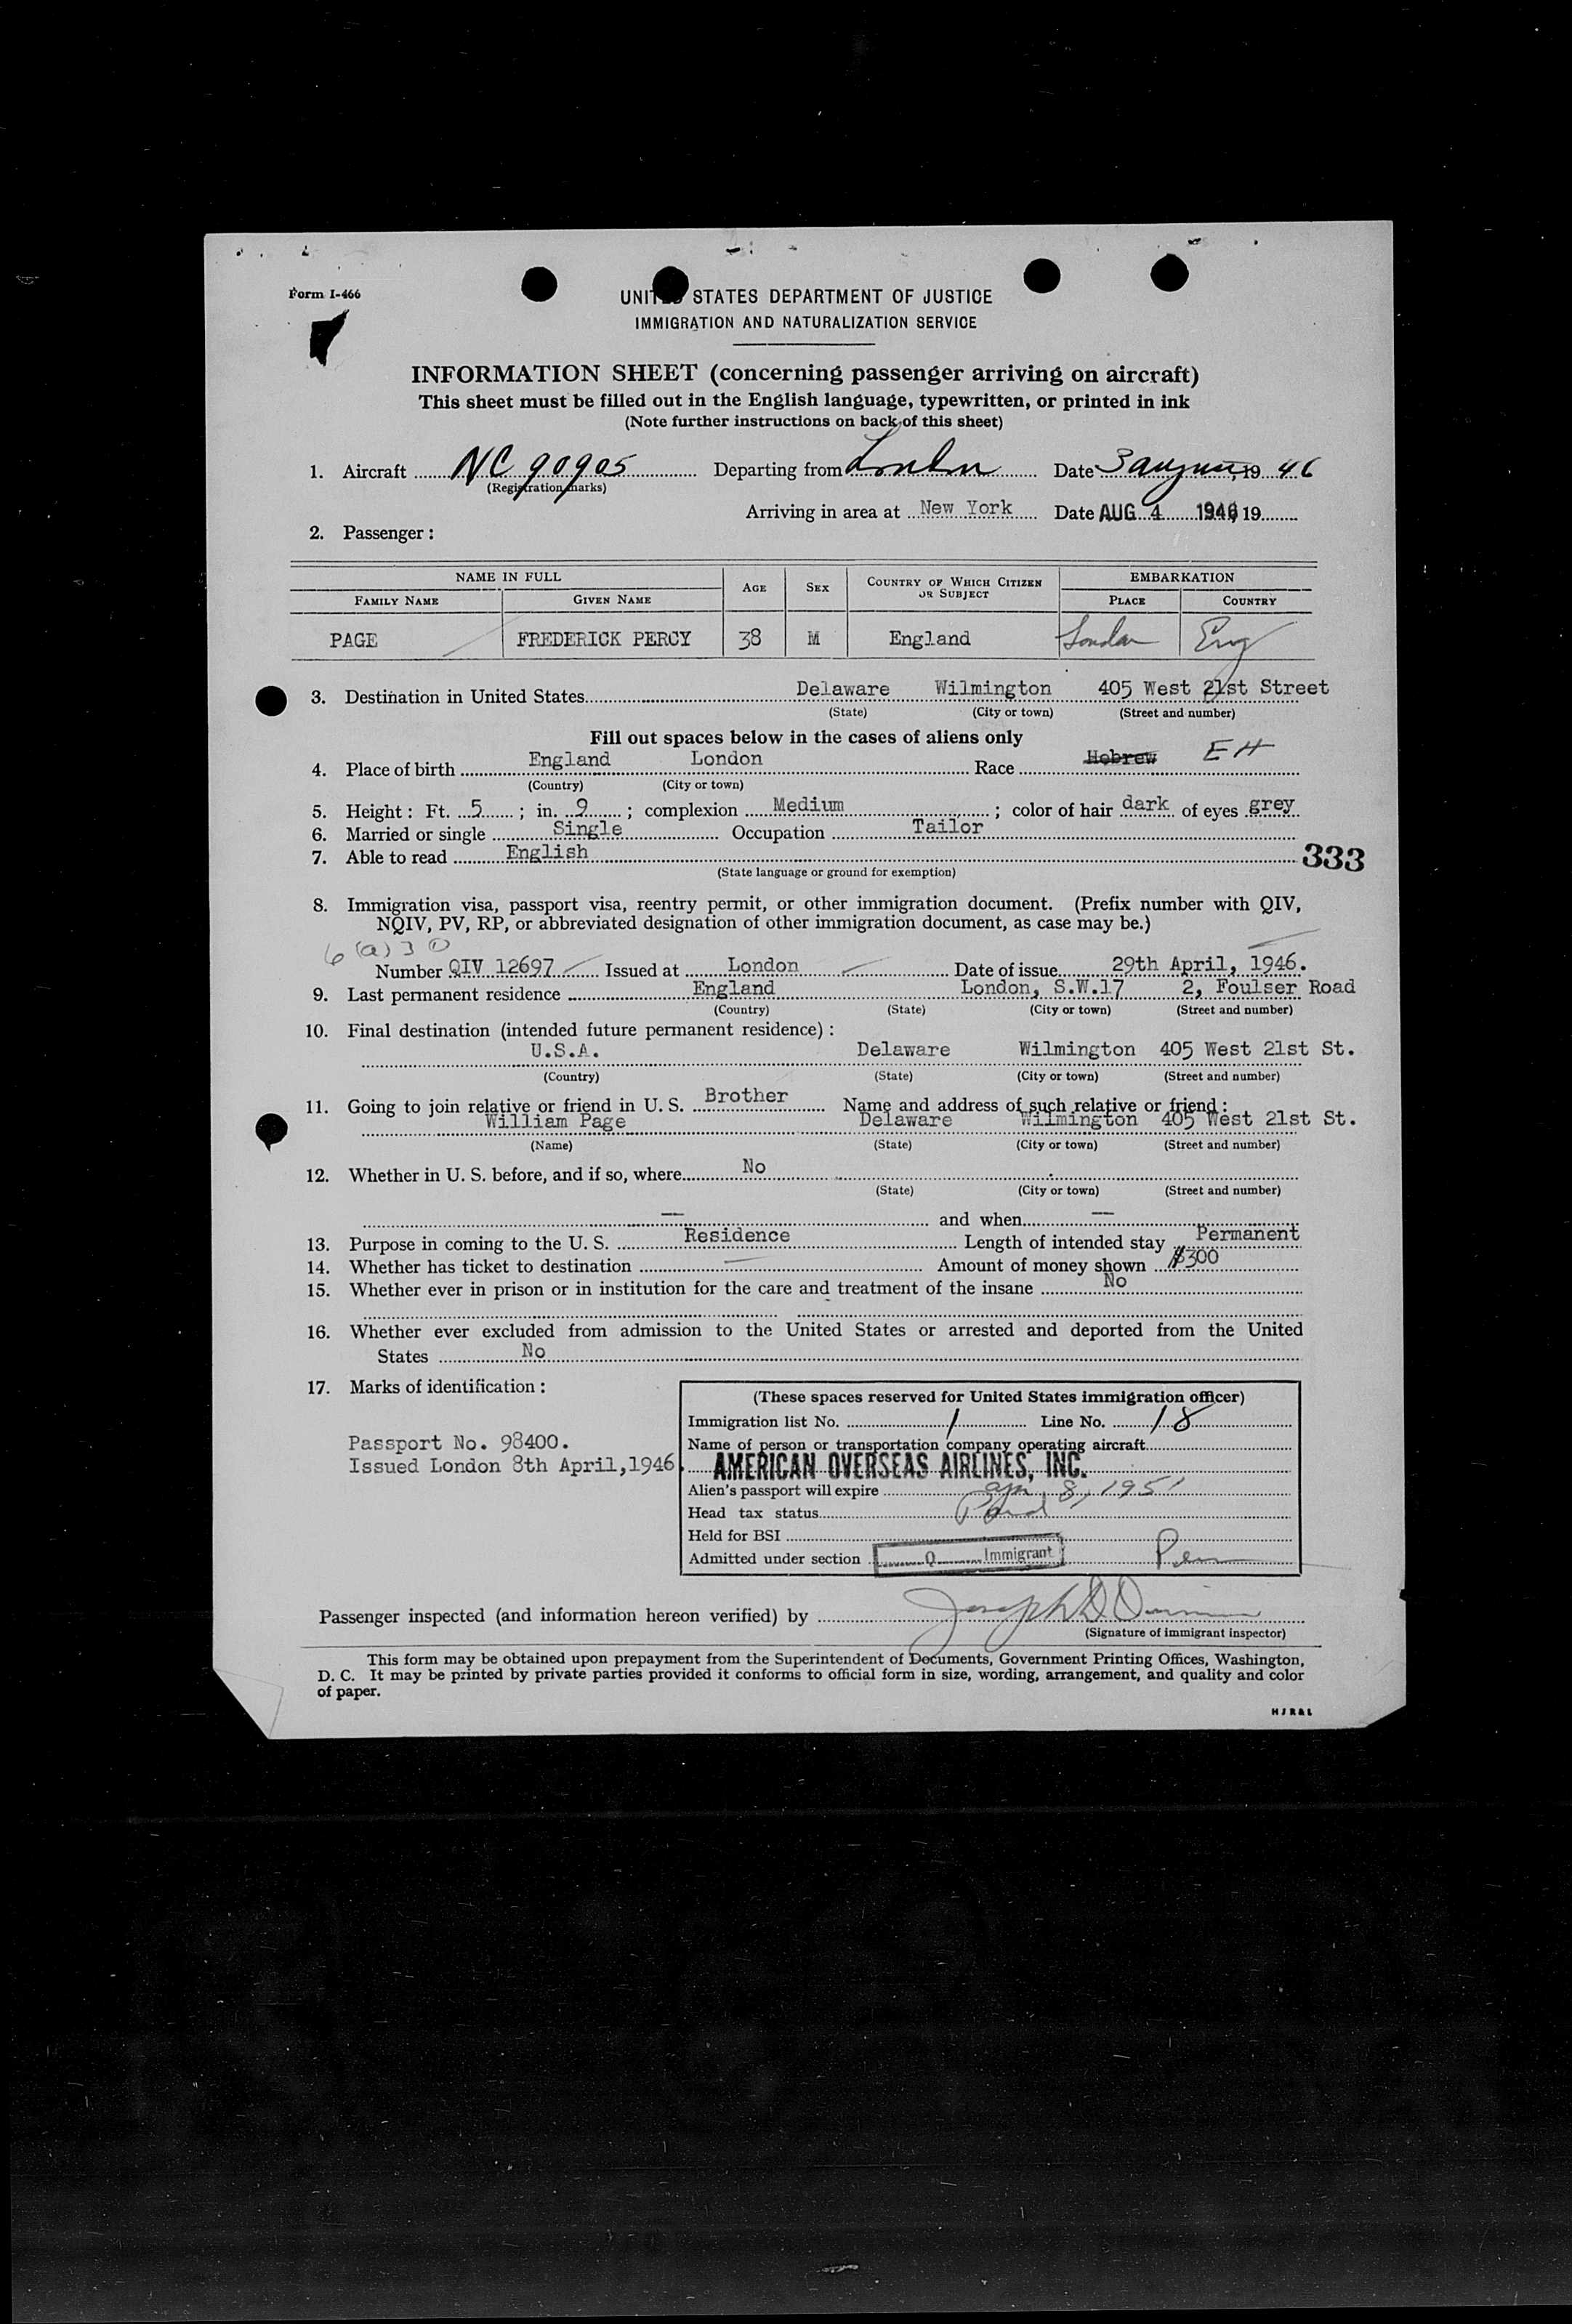 Form I-466
UNITED STATES DEPARTMENT OF JUSTICE
IMMIGRATION AND NATURALIZATION SERVICE
INFORMATION SHEET (concerning passenger arriving on aircraft)
This sheet must be filled out in the English language, typewritten, or printed in ink
(Note further instructions on back of this sheet)
1. Aircraft NC 90905 Departing from London Date 3 August, 19 46
(Registration marks)
Arriving in area at New York Date AUG 4 1946 19
2. Passenger:
NAME IN FULL AGE SEX COUNTRY OF WHICH CITIZEN OR SUBJECT EMBARKATION
FAMILY NAME GIVEN NAME PLACE COUNTRY
PAGE FREDERICK PERCY 38 M England London Eng
3. Destination in United States Delaware Wilmington 405 West 21st Street
(State) (City or town) (Street and number)
Fill out spaces below in the cases of aliens only
4. Place of birth England London Race Hebrew EH
(Country) (City or town)
5. Height: Ft. 5; in. 9; complexion Medium; color of hair dark of eyes grey
6. Married or single Single Occupation Tailor
7. Able to read English 333
(State language or ground for exemption)
8. Immigration visa, passport visa, reentry permit, or other immigration document. (Prefix number with QIV,
NQIV, PV, RP, or abbreviated designation of other immigration document, as case may be.)
6 (a) 3
Number QIV 12697 Issued at London Date of issue 29th April, 1946.
9. Last permanent residence England London, S.W.17 2, Foulser Road
(Country) (State) (City or town) (Street and number)
10. Final destination (intended future permanent residence):
U.S.A. Delaware Wilmington 405 West 21st St.
(Country) (State) (City or town) (Street and number)
11. Going to join relative or friend in U. S. Brother Name and address of such relative or friend:
William Page Delaware Wilmington 405 West 21st St.
(Name) (State) (City or town) (Street and number)
12. Whether in U. S. before, and if so, where No
(State) (City or town) (Street and number)
— and when —
13. Purpose in coming to the U. S. Residence Length of intended stay Permanent
14. Whether has ticket to destination — Amount of money shown $300
15. Whether ever in prison or in institution for the care and treatment of the insane No
16. Whether ever excluded from admission to the United States or arrested and deported from the United
States No
17. Marks of identification:
Passport No. 98400.
Issued London 8th April,1946.
(These spaces reserved for United States immigration officer)
Immigration list No. 1 Line No. 18
Name of person or transportation company operating aircraft
AMERICAN OVERSEAS AIRLINES, INC.
Alien's passport will expire Apr. 8, 1951
Head tax status Paid
Held for BSI
Admitted under section Q Immigrant Per
Passenger inspected (and information hereon verified) by Joseph D
(Signature of immigrant inspector)
This form may be obtained upon prepayment from the Superintendent of Documents, Government Printing Offices, Washington,
D. C. It may be printed by private parties provided it conforms to official form in size, wording, arrangement, and quality and color
of paper.
HJR&L